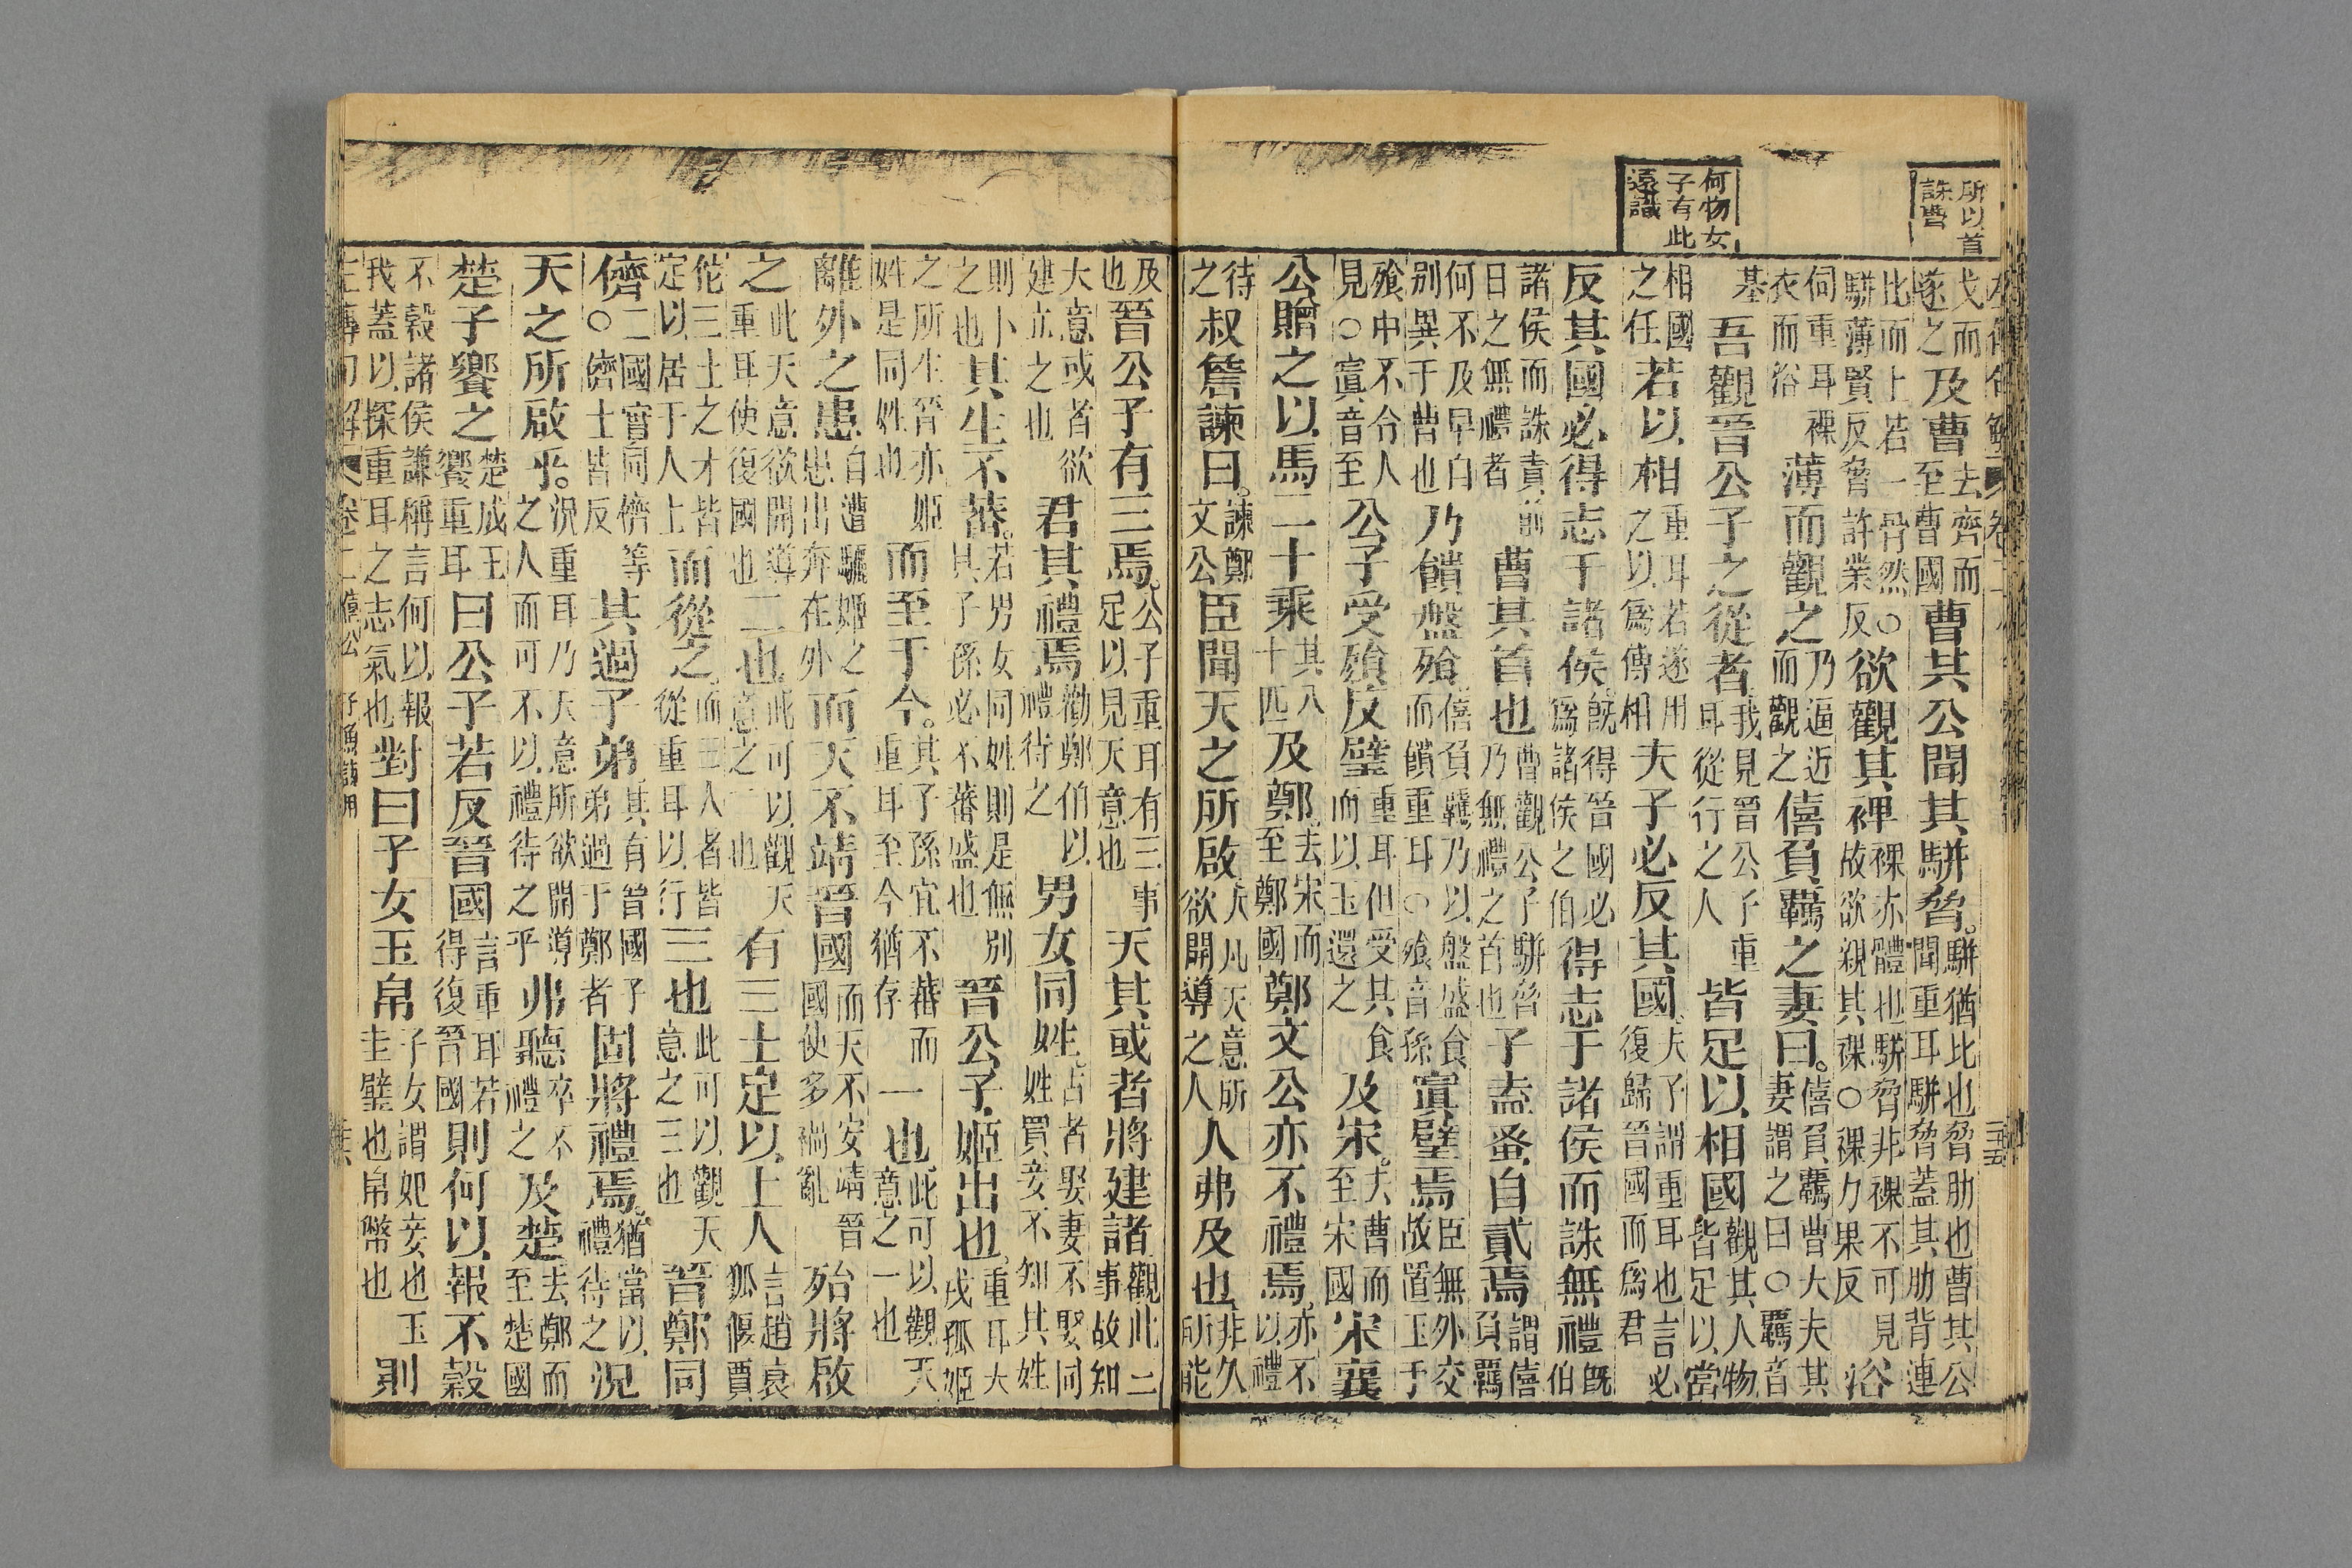 所以首
誅曹
何物女
子有此
遠識
戈而遂之及曹去齊而至曹國曹其公聞其駢脅。駢猶比也脅肋也曹其公聞重耳駢脅蓋其肋背連
比而上若一骨然○駢薄賢反脅許業反欲觀其裸裸亦體也駢脅非裸不可見故欲親其裸○裸力果反浴
伺重耳裸衣而浴薄而觀之乃逼近而觀之僖負羈之妻曰。僖負羈曹大夫其妻謂之曰○羈音
基吾觀晉公子之從者我見晉公子重耳從行之人皆足以相國觀其人物皆足以當
相國之任若以相重耳若遂用之以爲傅相夫子必反其國夫子謂重耳也言必復歸晉國而爲君
反其國必得志于諸侯既得晉國必爲諸侯之伯得志于諸侯而誅無禮既伯
諸侯而誅責前日之無禮者曹其首也曹觀公子駢脅乃無禮之首也子盍蚤自貳焉謂僖負羈
何不及早自别異于曹也乃饋盤飱僖負羈乃以盤盛食而饋重耳○飱音孫寘璧焉臣無外交故置玉于
飱中不令人見○寘音至公子受飱反璧重耳但受其食而以玉還之及宋。去曹而至宋國宋襄
公贈之以馬二十乘其八十匹及鄭去宋而至鄭國鄭文公亦不禮焉亦不以禮
待之叔詹諫曰。諫鄭文公臣聞天之所啟大凡天意所欲開導之人人弗及也非久所能
及也晉公子有三焉公子重耳有三事足以見天意也天其或者將建諸觀此二事故知
大意或者欲建立之也君其禮焉勸鄭伯以禮待之男女同姓古者娶妻不娶同姓買妾不知其姓
則卜之也其生不蕃若男女同姓則是無別其子孫必不蕃盛也晉公子姬出也重耳大戎狐姬
之所生晉亦姬姓是同姓也而至于今。其子孫宜不蕃而重耳至今猶存一也此可以觀天意之一也
離外之患自遭驪姬之患出奔在外而天不靖晉國而天不安靖晉國使多禍亂殆將啟
之此天意欲開導重耳使復國也二也此可以觀天意之二也有三士足以上人言趙衰狐偃賈
佗三士之才皆足以居于人上而從之而三人者皆從重耳以行三也此可以觀天意之三也晉鄭同
儕二國實同儕等○儕士皆反其過子弟其有晉國子弟過于鄭者固將禮焉猶當以禮待之況
天之所啟乎。況重耳乃天意所欲開導之人而可不以禮待之乎弗聽卒不禮之及楚去鄭而至楚國
楚子饗之楚成王饗重耳曰公子若反晉國言重耳若得復晉國則何以報不穀
不穀諸侯謙稱言何以報我蓋以探重耳之志氣也對曰子女玉帛子女謂妃妾也玉圭璧也帛幣也則